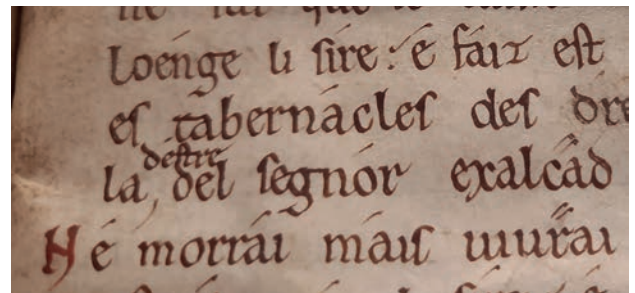 Loenge li sire: é faiz est
es tabernácles des dre
destre
la, del segnór exalcád
Né morrái máis uiurái